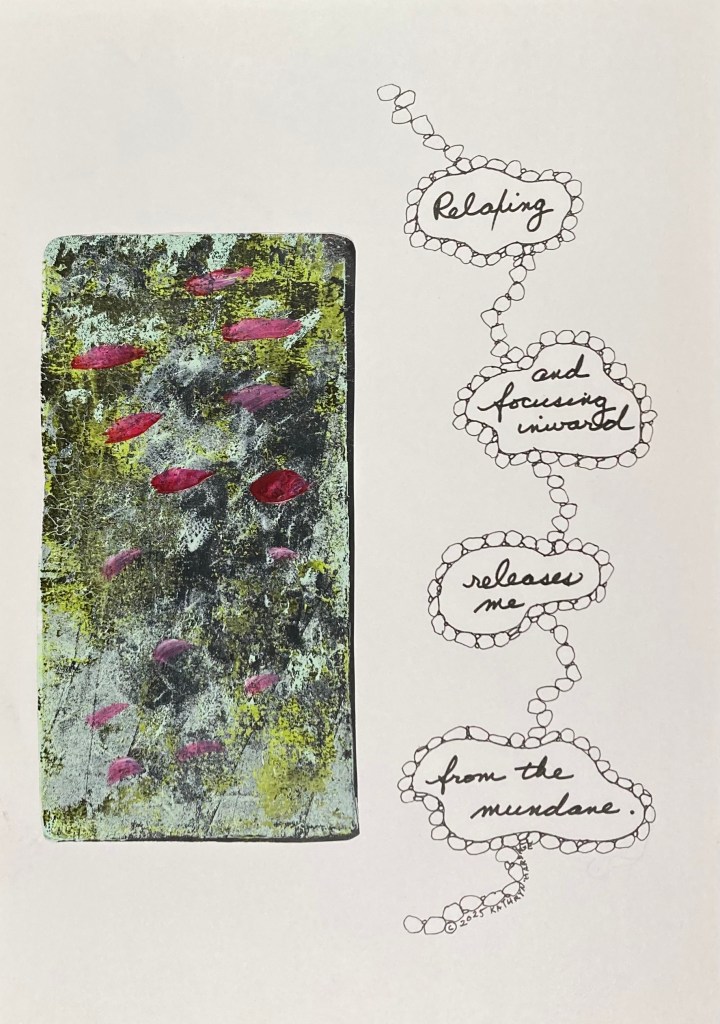 Relaxing
and
focusing
inward
releases
me
from the
mundane.
© 2025 KATHRYN